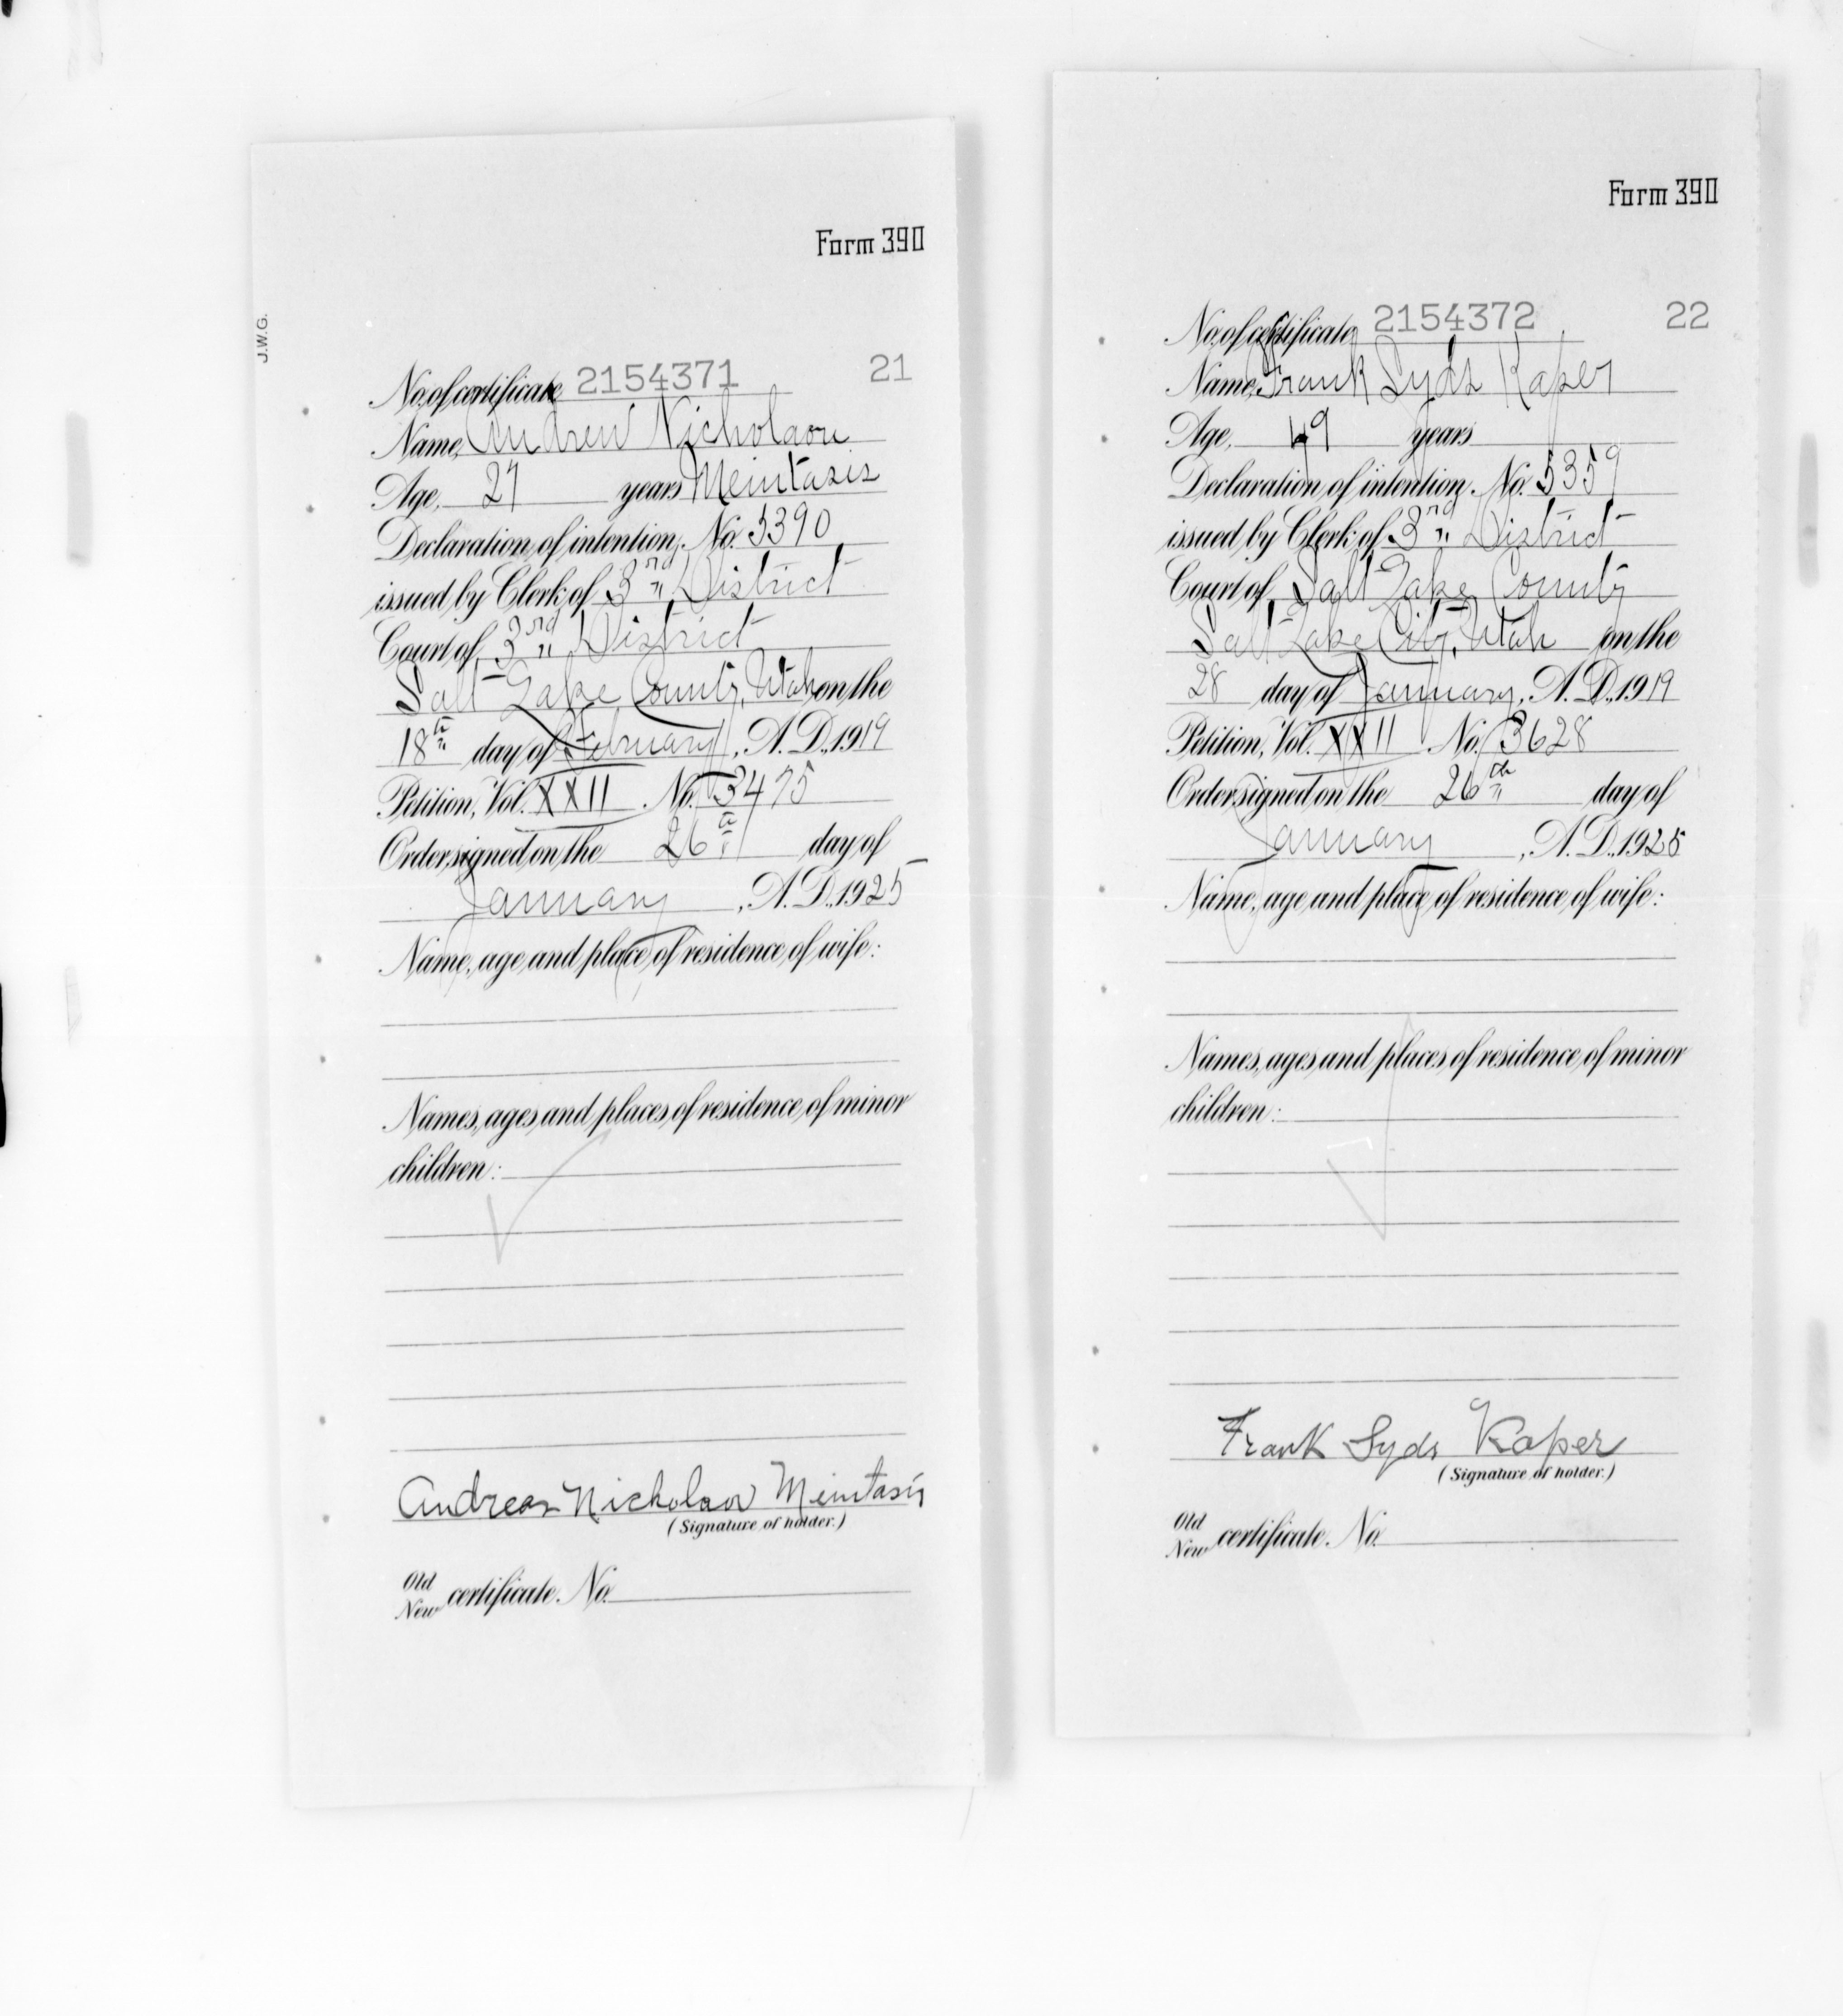 Form 390
J.W.G.
No. of certificate 2154371 21
Name, Andrew Nicholaou
Age, 27 years Meintasis
Declaration of intention, No. 5390
issued by Clerk of 3rd " District
Court of 3rd " District
Salt Lake County, Utah on the
18th day of February, A.D., 1919
Petition, Vol. XXII No. 3475
Order signed on the 26th day of
January, A.D., 1925
Name, age and place of residence of wife:
Names, ages and places of residence of minor
children:
Andreas Nicholaov Meintasis
(Signature of holder.)
Old
New certificate. No.
Form 390
No. of certificate 2154372 22
Name, Frank Syds Kaper
Age, 49 years
Declaration of intention. No. 5359
issued by Clerk of 3rd " District
Court of Salt Lake County
Salt Lake City, Utah on the
28 day of January, A.D., 1919
Petition, Vol. XXII No. 3628
Order signed on the 26th day of
January, A.D., 1925
Name, age and place of residence of wife:
Names, ages and places of residence of minor
children:
Frank Syds Kaper
(Signature of holder.)
Old
New certificate. No.